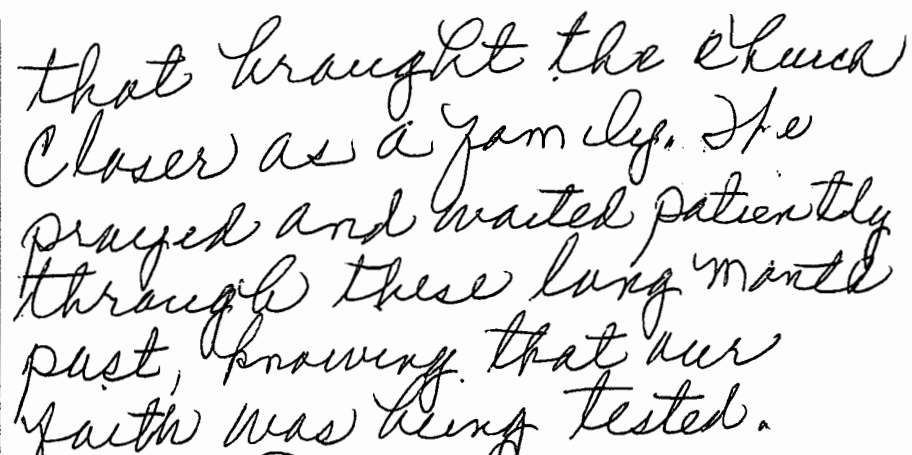 that brought the church
Closer as a family. The
prayed and waited patiently
through these long months
past, knowing that our
faith was being tested.